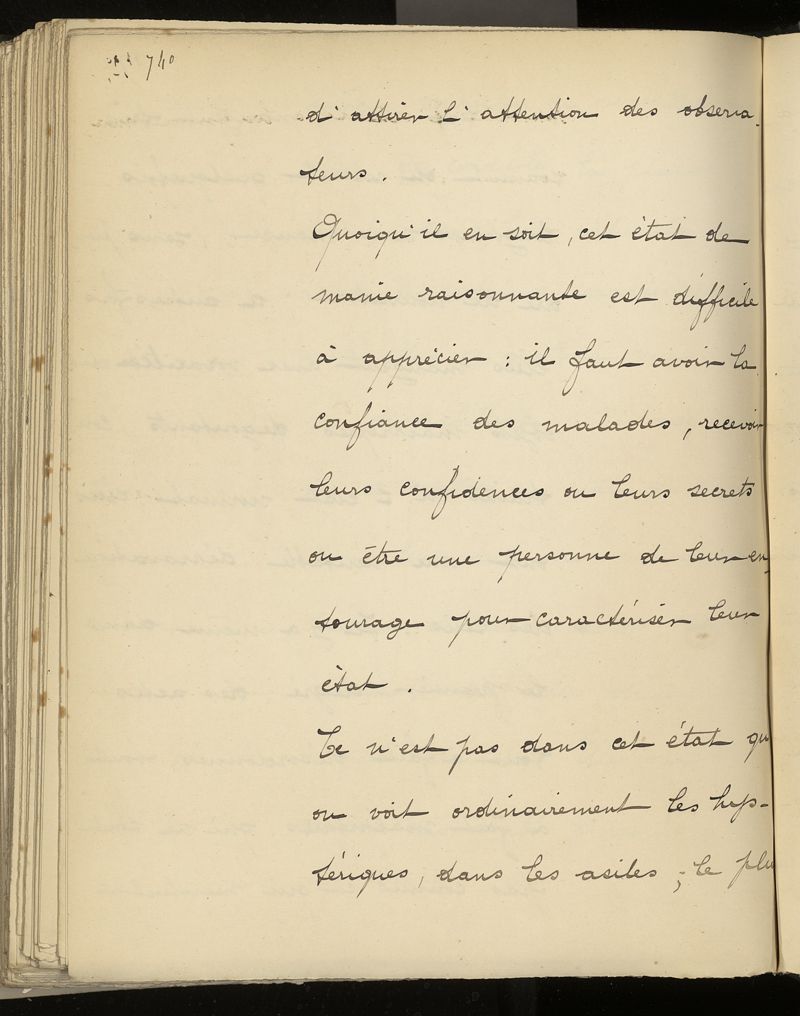 740
d'attirer l'attention des observa-
teurs.
Quoiqu'il en soit, cet état de
manie raisonnante est difficile
à apprécier : il faut avoir la
confiance des malades, recevoir
leurs confidences ou leurs secrets
ou être une personne de leur en-
tourage pour caractériser leur
état.
Ce n'est pas dans cet état qu
on voit ordinairement les hys-
tériques, dans les asiles ; le plu